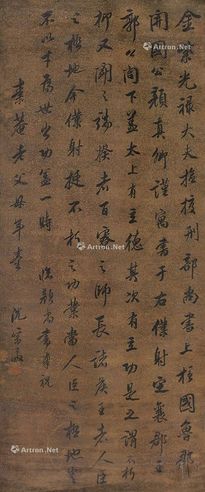 金紫光禄大夫檢校刑部尚書上柱國魯郡
開國公顏真卿謹寓書于右僕射定襄郡王
郭公閣下蓋太上有立德其次有立功是之謂不朽
抑又聞之端揆者百寮之師長諸侯王者人臣
之極地今僕射挺不朽之功業當人臣之極地豈
不以才為世出功冠一時 臨顏尚書奉祝
老父母年臺
沈宗